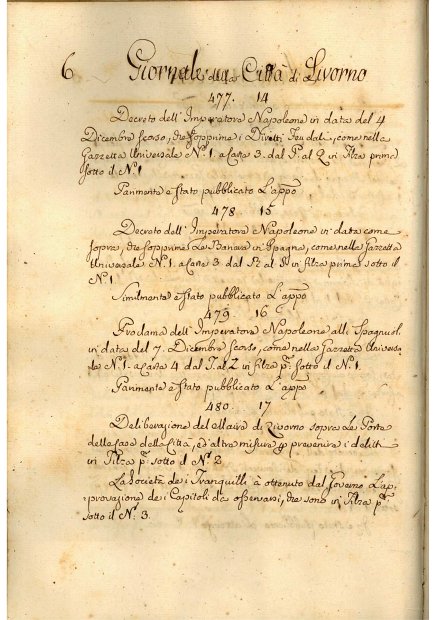 6 Giornale della Città di Livorno
477. 14
Decreto dell'Imperatore Napoleone in data del 4
Dicembre scorso, che sopprime i Diritti Feudali, come nella
Gazzetta Universale N.º 1. a Carte 3. dal P. al Q in Filza prima
sotto il N.º 1
Parimente è stato pubblicato L'appº
478 15
Decreto dell'Imperatore Napoleone in data come
sopra, che sopprime Le in Spagna, come nella Gazzetta
Universale N.º 1. a Carte 3 dal al in filza prima sotto il
N.º 1.
Similmente è stato pubblicato L'appº
479 16
Proclama dell'Imperatore Napoleone alli Spagnuoli
in data del 7. Dicembre scorso, come nella Gazzetta Universa
le N.º 1. a Carte 4 dal T. al Z in filza pª sotto il N.º 1.
Parimente è stato pubblicato L'appº
480. 17
Deliberazione del Maire di Livorno sopra Le Porte
delle Case della Città, ed altre misure p prevenire i delitti
in Filza pª: sotto il N.º 2
La Società dei Tranquilli à ottenuto dal Governo L'ap,
provazione dei Capitoli da osservarsi, che sono in Filza pª
sotto il N.º 3.